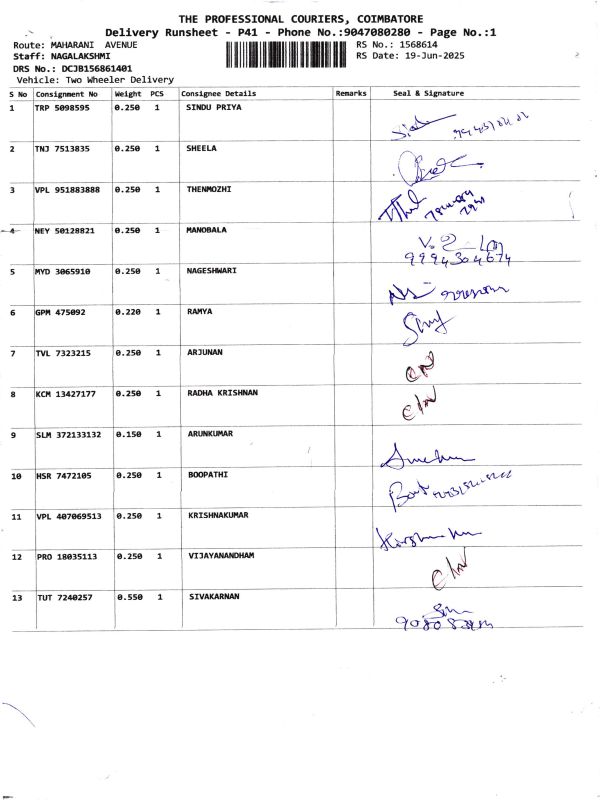 THE PROFESSIONAL COURIERS, COIMBATORE
Delivery Runsheet - P41 - Phone No.:9047080280 - Page No.:1
Route: MAHARANI AVENUE
RS No.: 1568614
Staff: NAGALAKSHMI
RS Date: 19-Jun-2025
DRS No.: DCJB156861401
Vehicle: Two Wheeler Delivery
S No Consignment No Weight PCS Consignee Details Remarks Seal & Signature
1 TRP 5098595 0.250 1 SINDU PRIYA
2 TNJ 7513835 0.250 1 SHEELA
3 VPL 951883888 0.250 1 THENMOZHI
4 NEY 50128821 0.250 1 MANOBALA
9994304674
5 MYD 3065910 0.250 1 NAGESHWARI
6 GPM 475092 0.220 1 RAMYA
7 TVL 7323215 0.250 1 ARJUNAN
8 KCM 13427177 0.250 1 RADHA KRISHNAN
9 SLM 372133132 0.150 1 ARUNKUMAR
10 HSR 7472105 0.250 1 BOOPATHI
11 VPL 407069513 0.250 1 KRISHNAKUMAR
12 PRO 18035113 0.250 1 VIJAYANANDHAM
13 TUT 7240257 0.550 1 SIVAKARNAN